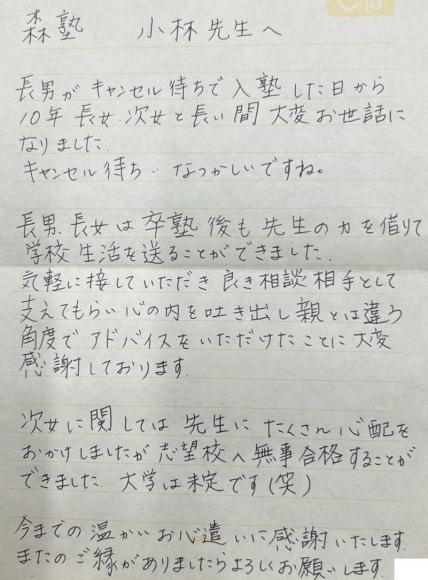 森塾　小林先生へ
長男がキャンセル待ちで入塾した日から
10年 長女、次女と長い間 大変お世話に
なりました。
キャンセル待ち‥なつかしいですね。
長男、長女は卒塾後も先生の力を借りて
学校生活を送ることができました。
気軽に接していただき良き相談相手として
支えてもらい心の内を吐き出し親とは違う
角度でアドバイスをいただけたことに大変
感謝しております。
次女に関しては先生にたくさん心配を
おかけしましたが志望校へ無事合格することが
できました。大学は未定です(笑)
今までの温かいお心遣いに感謝いたします。
またのご縁がありましたらよろしくお願いします。